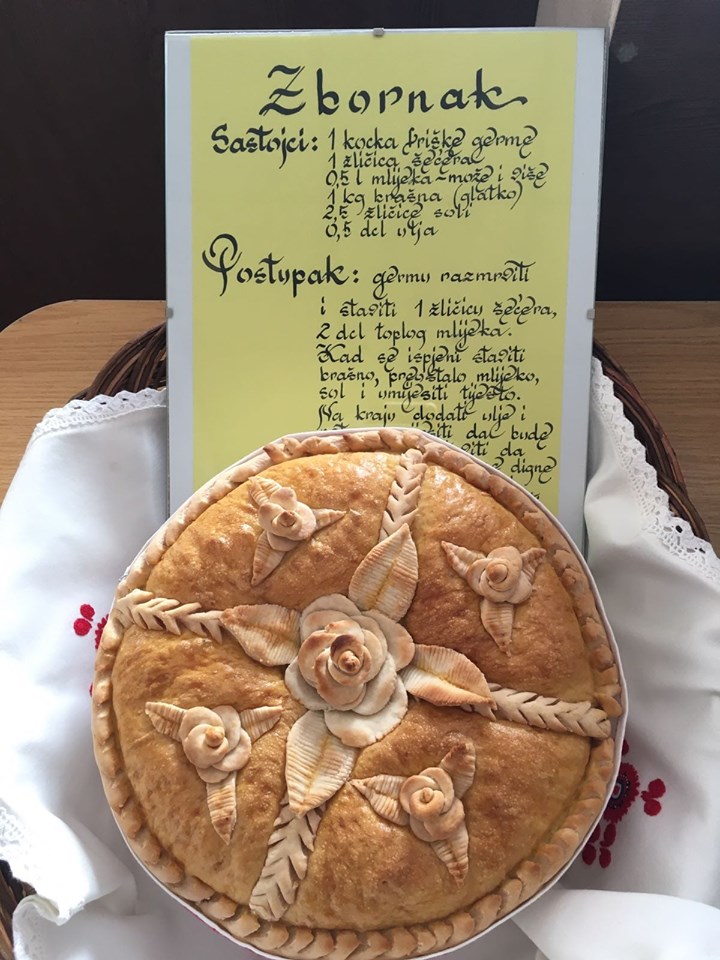 Zbornak
Sastojci: 1 kocka friške germe
1 žličica šećera
0,5 l mlijeka - može i više
1 kg brašna (glatko)
2,5 žličice soli
0,5 dcl ulja
Postupak: germu razmrviti
i staviti 1 žličicu šećera,
2 dcl toplog mlijeka.
Kad se ispjeni staviti
brašno, preostalo mlijeko,
sol i umijesiti tijesto.
Na kraju dodati ulje i
da bude
da
digne